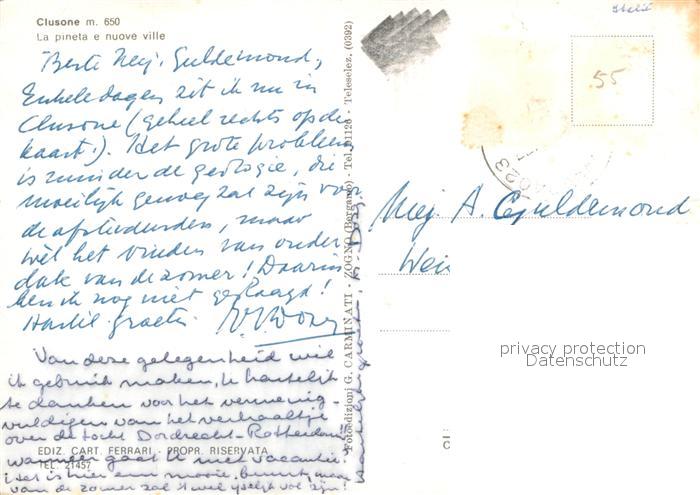 Italië
Clusone m. 650
La pineta e nuove ville
Beste Mej. Guldemond,
Enkele dagen zit ik nu in
Clusone (geheel rechts op de
kaart!). Het grote probleem
is minder de geologie, die
moeilijk genoeg zal zijn voor
de afstudeerders, maar
wèl het vinden van onder-
dak van de zomer! Daarin
ben ik nog niet geslaagd!
Hartel. groeten
Van deze gelegenheid wil
ik gebruik maken, U hartelijk
te danken voor het vermenig-
vuldigen van het verhaaltje
over de tocht Dordrecht - Rotterdam!
EDIZ. CART. FERRARI - PROPR. RISERVATA
wanneer gaat U met vacantie?
TEL. 21457
Het is hier een mooie buurt, maar
van de zomer zal 't wel vol zijn!
Fotoedizioni G. CARMINATI - ZOGNO (Bergamo) - Tel. 91126 - Teleselez. (0392)
55
Mej. A. Guldemond
privacy protection
Datenschutz